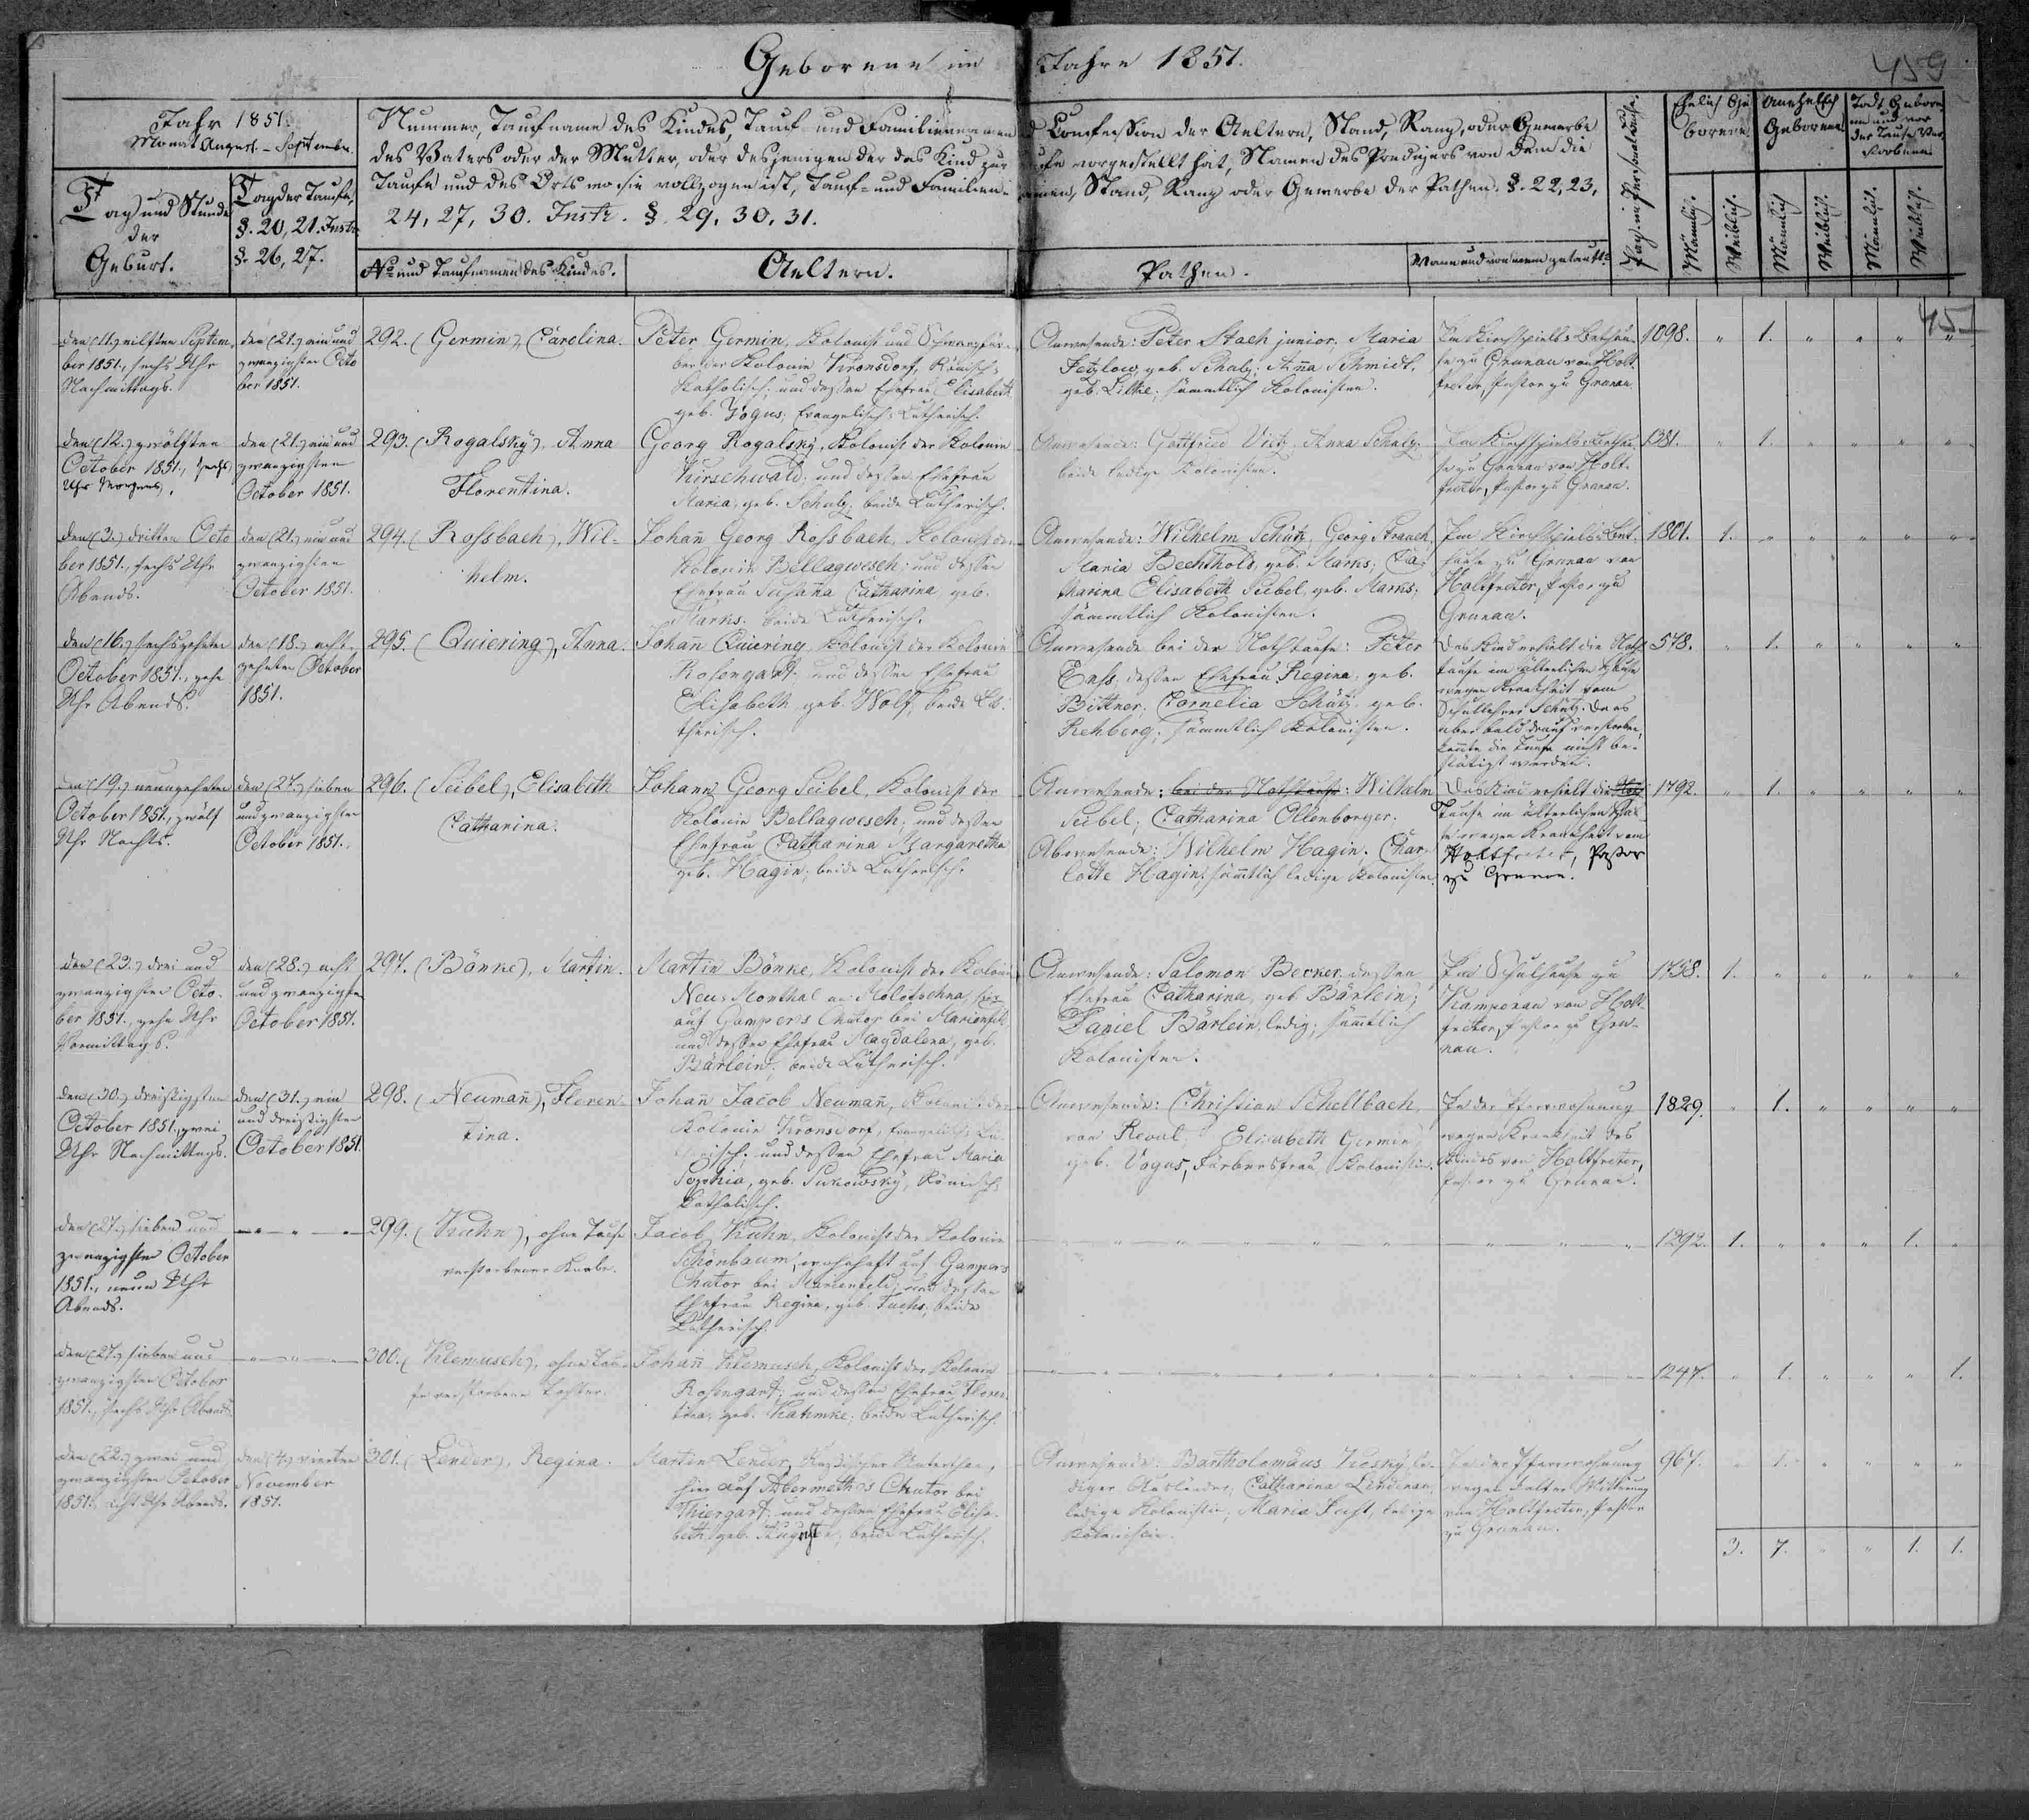 Geborene im Jahre 1851.
459
451
Jahr 1851.
Monat August - September
Tag und Stunde
der
Geburt.
Tag der Taufe,
§. 20, 21. Instr.
§. 26, 27.
Nummer, Taufname des Kindes, Tauf- und Familiennamen
des Vaters oder der Mutter, oder desjenigen der das Kind zur
Taufe und des Orts wo sie vollzogen ist, Tauf- und Familien-
24, 27, 30. Instr. §. 29, 30, 31.
No und Taufnamen des Kindes.
Aeltern.
Confession der Aeltern, Stand, Rang, oder Gewerbe
vorgestellt hat, Namen des Predigers von dem die
Stand, Rang oder Gewerbe der Pathen. §. 22, 23,
Pathen.
Wann und von wem getauft.
Pag. im Personalbuche.
Ehelich Ge
borene
Männlich.
Weiblich.
Unehelich
Geborene
Männlich.
Weiblich.
Todt Gebore
ne und vor
der Taufe Ver
storbene
Männlich.
Weiblich.
den (11.) eilften Septem-
ber 1851., sechs Uhr
Nachmittags.
den (21.) ein und
zwanzigsten Octo
ber 1851.
292. (Germin), Carolina.
Peter Germin, Kolonist und Schwarzfär-
ber der Kolonie Kronsdorf, Römisch-
Katholisch; und dessen Ehefrau Elisabeth
geb. Vogus; Evangelisch-Lutherisch.
Anwesende: Peter Stach junior; Maria
Fetzlow, geb. Schulz; Anna Schmidt,
geb. Lilke; sämmtlich Kolonisten.
Im Kirchspiels-Bethau-
se zu Grunau von Holt-
freter, Pastor zu Grunau.
1098. " 1. " " " "
den (12.) zwölften
October 1851., sechs
Uhr Morgens.
den (21.) ein und
zwanzigsten
October 1851.
293. (Rogalsky), Anna
Florentina.
Georg Rogalsky, Kolonist der Kolonie
Kirschwald; und dessen Ehefrau
Maria, geb. Schulz; beide Lutherisch.
Anwesende: Gottfried Vietz, Anna Schulz;
beide ledige Kolonisten.
Im Kirchspiels-Bethau
se zu Grunau von Holt-
freter, Pastor zu Grunau.
1381. " 1. " " " "
den (3.) dritten Octo
ber 1851., sechs Uhr
Abends.
den (21.) ein und
zwanzigsten
October 1851.
294. (Rossbach), Wil-
helm.
Johann Georg Rossbach, Kolonist der
Kolonie Bellagwesch; und dessen
Ehefrau Susana Catharina geb.
Marks; beide Lutherisch.
Anwesende: Wilhelm Schütz, Georg Strauch,
Maria Bechthold, geb. Marks; Ca-
tharina Elisabeth Seibel, geb. Marks;
sämmtlich Kolonisten.
Im Kirchspiels-Bet-
hause zu Grunau von
Holtfreter, Pastor zu
Grunau.
1801. 1. " " " " "
den (16.) sechszehnten
October 1851., zehn
Uhr Abends.
den (18.) acht-
zehnten October
1851.
295. (Quiering), Anna.
Johann Quiering, Kolonist der Kolonie
Rosengart; und dessen Ehefrau
Elisabeth geb. Wolf; beide Lu-
therisch.
Anwesende bei der Nothtaufe: Peter
Enss, dessen Ehefrau Regina, geb.
Bittner; Cornelia Schütz, geb.
Rehberg; sämmtlich Kolonisten.
Das Kind erhielt die Noth
taufe im älterlichen Hause
wegen Krankheit vom
Schullehrer Schütz. Da es
aber bald drauf verstorben,
konnte die Taufe nicht be-
stätigt werden.
578. " 1. " " " "
den (19.) neunzehnten
October 1851., zwölf
Uhr Nachts.
den (27.) sieben
und zwanzigsten
October 1851.
296. (Seibel), Elisabeth
Catharina.
Johann Georg Seibel, Kolonist der
Kolonie Bellagwesch; und dessen
Ehefrau Catharina Margaretha
geb. Hagin; beide Lutherisch.
Anwesende: bei der Nothtaufe: Wilhelm
Seibel; Catharina Ollenborger.
Abwesende: Wilhelm Hagin. Char-
lotte Hagin; sämtlich ledige Kolonisten.
Das Kind erhielt die Noth
Taufe im älterlichen Hau-
se wegen Krankheit vom
Holtfreter, Pastor
zu Grunau.
1792. " 1. " " " "
den (23.) drei und
zwanzigsten Octo-
ber 1851., zehn Uhr
Vormittags.
den (28.) acht
und zwanzigsten
October 1851.
297. (Bönke), Martin.
Martin Bönke, Kolonist der Kolonie
Neu-Monthal an Molotschna, hier
auf Gampers Chutor bei Marienfeld,
und dessen Ehefrau Magdalena, geb.
Bärlein; beide Lutherisch.
Anwesende: Salomon Becker, dessen
Ehefrau Catharina, geb. Bärlein;
Daniel Bärlein, ledig; sämtlich
Kolonisten.
Im Schulhause zu
Kampenau von Holt-
freter, Pastor zu Gru-
nau.
1758. 1. " " " " "
den (30.) dreisigsten
October 1851., zwei
Uhr Nachmittags.
den (31.) ein
und dreisigsten
October 1851
298. (Neumann), Floren-
tina.
Johann Jacob Neumann, Kolonist der
Kolonie Kronsdorf, Evangelisch-Lu-
therisch; und dessen Ehefrau Maria
Sophia, geb. Sukowsky, Römisch-
Katholisch.
Anwesende: Christian Schellbach,
von Reval; Elisabeth Germin,
geb. Vogus, Färbersfrau, Kolonistin.
In der Pfarrwohnung
wegen Krankheit des
Kindes von Holtfreter,
Pastor zu Grunau.
1829. " 1. " " " "
den (27.) sieben und
zwanzigsten October
1851., neun Uhr
Abends.
299. (Kuhn), ohne Taufe
verstorbener Knabe.
Jacob Kuhn, Kolonist der Kolonie
Schönbaum, wohnhaft auf Gampers
Chutor bei Marienfeld; und dessen
Ehefrau Regina, geb. Fuchs; beide
Lutherisch.
1292. 1. " " " 1. "
den (27.) sieben und
zwanzigsten October
1851., sechs Uhr Abends.
300. (Klemusch), ohne Tau-
fe verstorbene Tochter.
Johann Klemusch, Kolonist der Kolonie
Rosengart; und dessen Ehefrau Floren-
tina, geb. Katimke; beide Lutherisch.
1247. " 1. " " " 1.
den (22.) zwei und
zwanzigsten October
1851., acht Uhr Abends.
den (4.) vierten
November
1851.
301. (Lender), Regina.
Martin Lender, Unterthan,
hier auf Abermeth's Chutor bei
Thiergart; und dessen Ehefrau Elisa-
beth geb. August; beide Lutherisch.
Anwesende: Bartholomäus Kesky, le-
diger Ausländer, Catharina Lindenau,
ledige Kolonistin; Maria Fast, ledige
Kolonistin.
In der Pfarrwohnung
wegen kalter Witterung
von Holtfreter, Pastor
zu Grunau.
967. " 1. " " " "
3. 7. " " 1. 1.